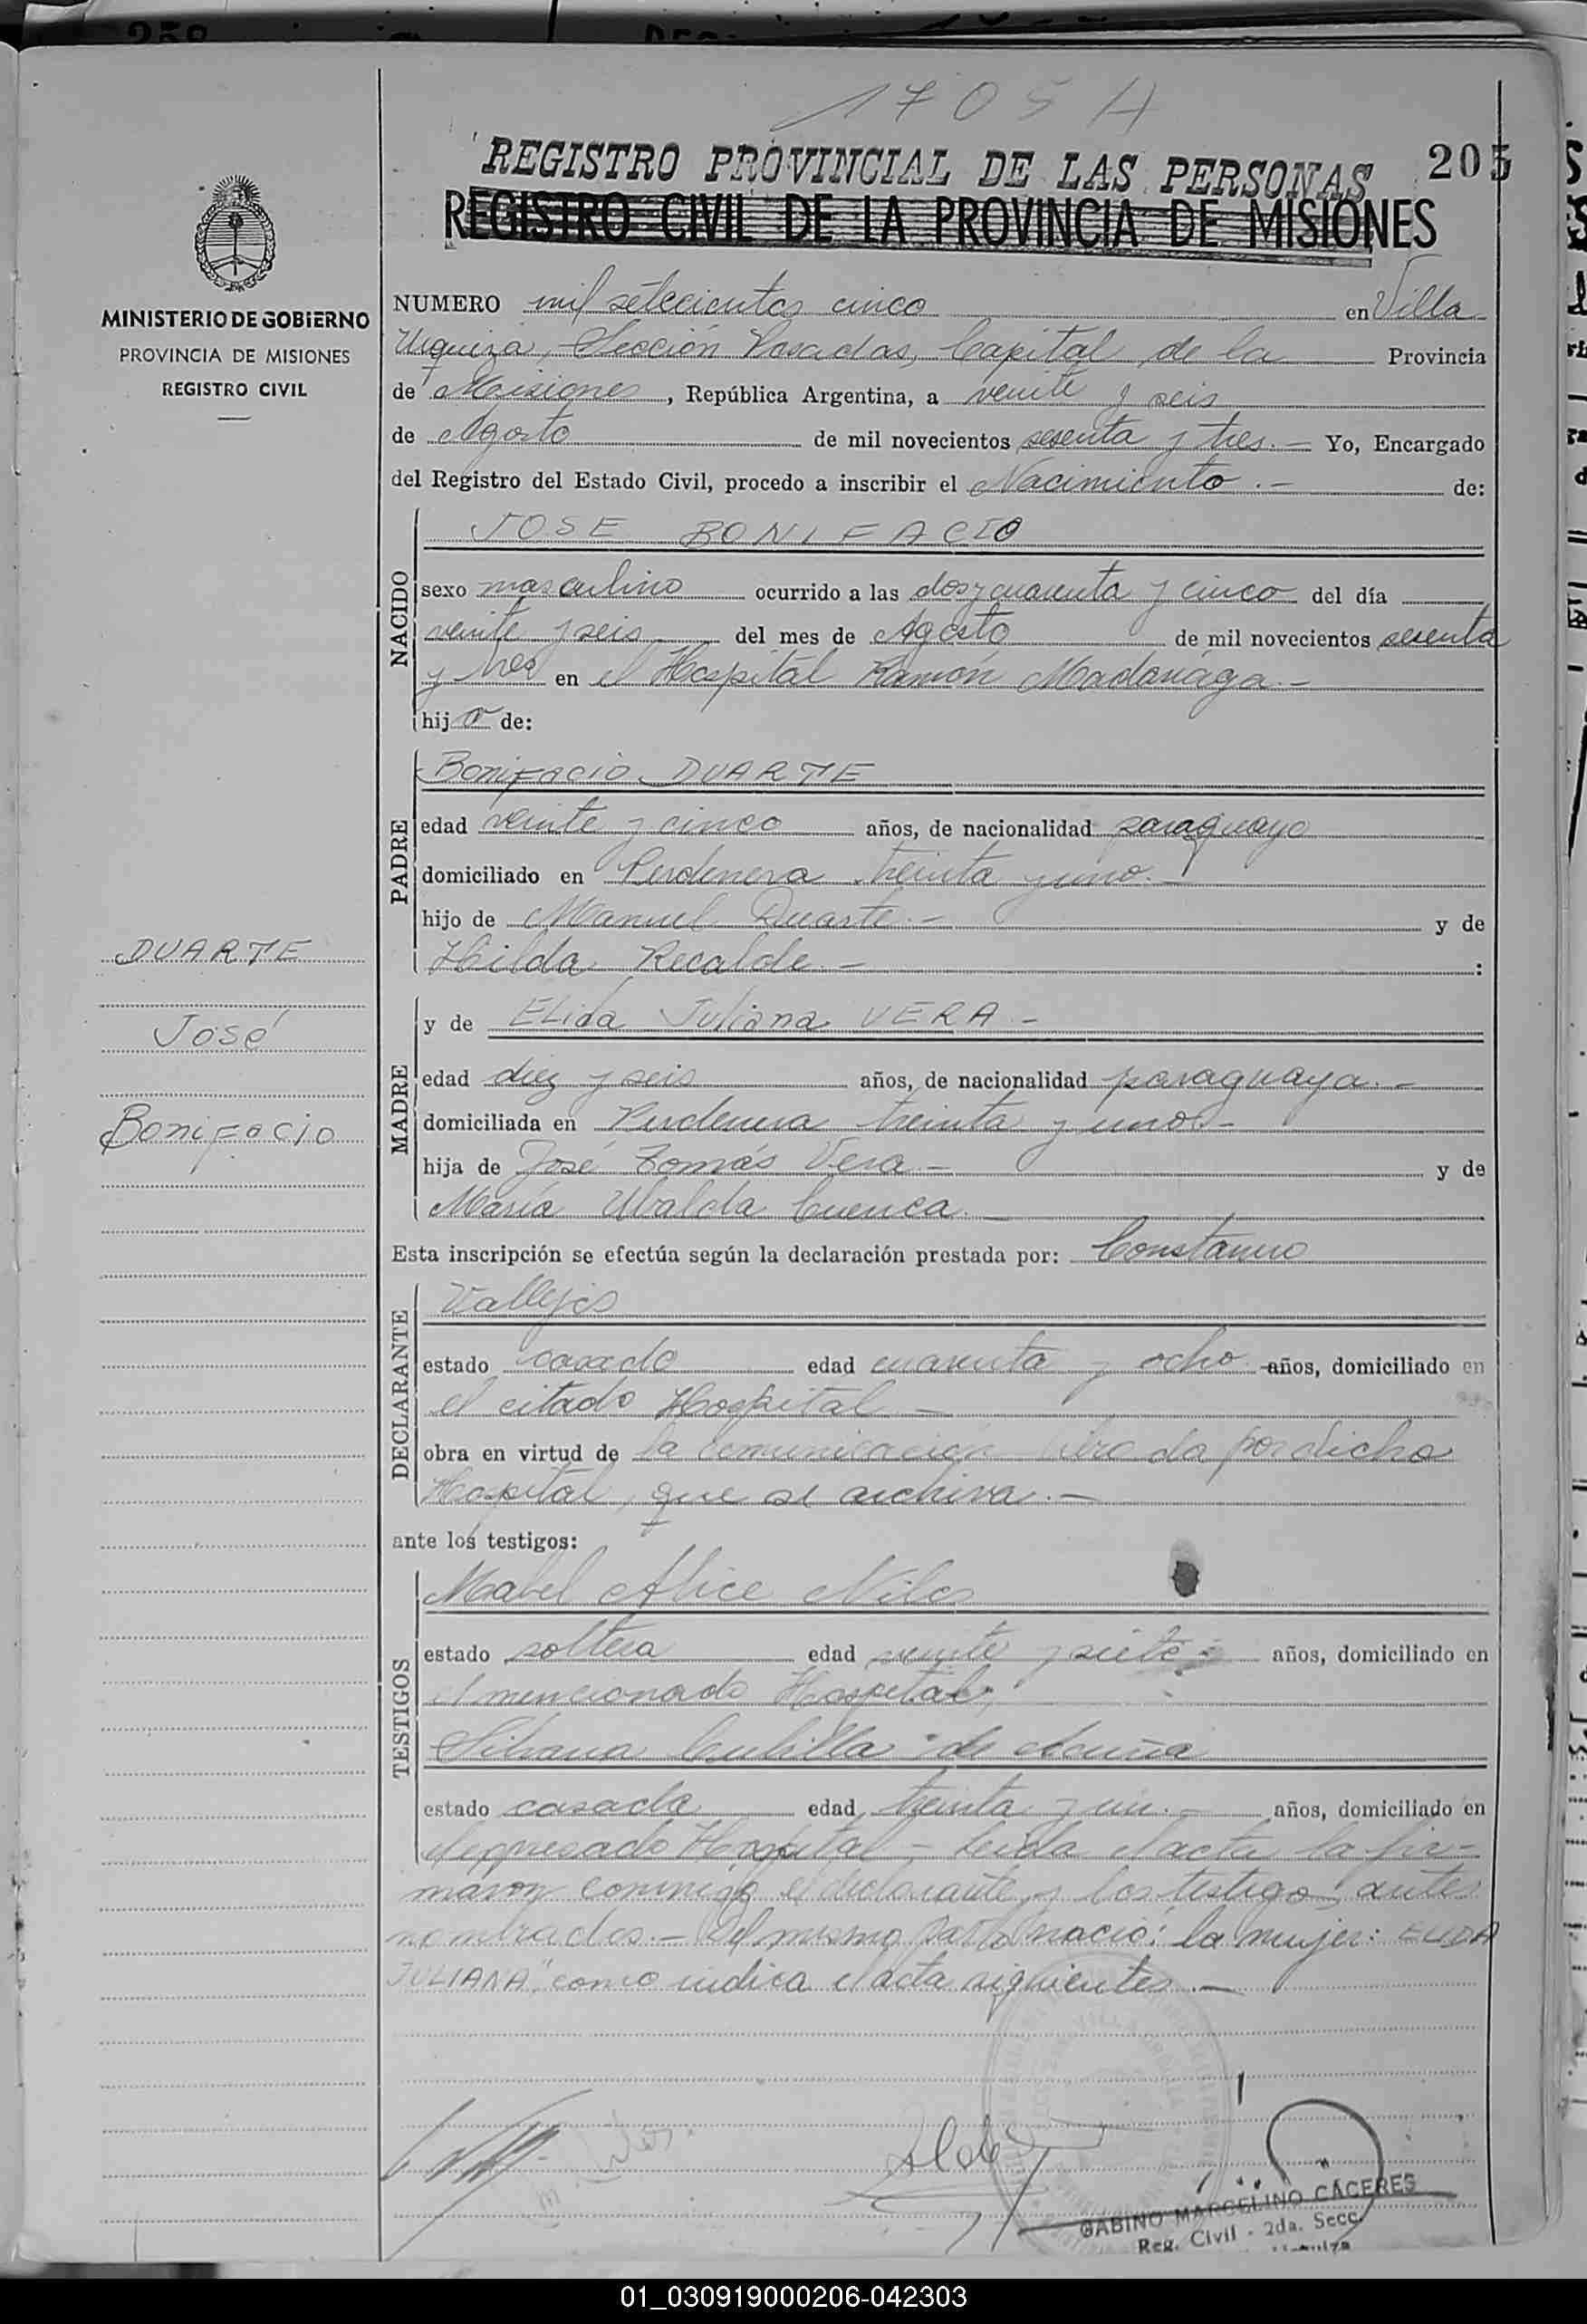 1705 A
REGISTRO PROVINCIAL DE LAS PERSONAS
205
REGISTRO CIVIL DE LA PROVINCIA DE MISIONES
MINISTERIO DE GOBIERNO
PROVINCIA DE MISIONES
REGISTRO CIVIL
NUMERO mil setecientos cinco en Villa
Urquiza, Sección Posadas, Capital de la Provincia
de Misiones, República Argentina, a veinte y seis
de Agosto de mil novecientos sesenta y tres.- Yo, Encargado
del Registro del Estado Civil, procedo a inscribir el Nacimiento.- de:
NACIDO
JOSE BONIFACIO
sexo masculino ocurrido a las dos y cuarenta y cinco del día
veinte y seis del mes de Agosto de mil novecientos sesenta
y tres en el Hospital Ramón Madariaga.-
hijo de:
PADRE
Bonifacio DUARTE
edad veinte y cinco años, de nacionalidad paraguayo
domiciliado en Perdenera treinta y uno.-
hijo de Manuel Duarte.- y de
Hilda Recalde.- :
DUARTE
José
Bonifacio
MADRE
y de Elida Juliana VERA.-
edad diez y seis años, de nacionalidad paraguaya.-
domiciliada en Perdenera treinta y uno.-
hija de José Tomás Vera.- y de
María Ubalda Cuenca.-
Esta inscripción se efectúa según la declaración prestada por: Constancio
DECLARANTE
Vallejos
estado casado edad cuarenta y ocho años, domiciliado en
el citado Hospital.-
obra en virtud de la comunicación librada por dicho
Hospital, que se archiva.-
ante los testigos:
TESTIGOS
Mabel Alice Niles
estado soltera edad veinte y siete años, domiciliado en
el mencionado Hospital;
Silvana de Acuña
estado casada edad treinta y un.- años, domiciliado en
el expresado Hospital.- Leida el acta la fir-
maron conmigo el declarante y los testigos antes
nombrados.- Del mismo parto nació: la mujer: ELIDA
JULIANA" como indica el acta siguientes.-
GABINO MARCELINO CACERES
Reg. Civil - 2da. Secc.
01_030919000206-042303